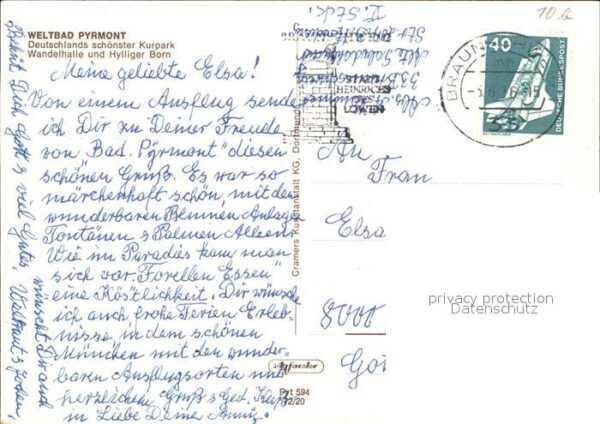 WELTBAD PYRMONT
Deutschlands schönster Kurpark
Wandelhalle und Hylliger Born
Meine geliebte Elsa!
Von einem Ausflug sende
ich Dir zu Deiner Freude
von „Bad. Pyrmont" diesen
schönen Gruß. Es war so
märchenhaft schön, mit den
wunderbaren Blumen Anlagen
Fontänen & Palmen Alleen.
Wie im Paradies kam man
sich vor. Forellen Essen"
eine Köstlichkeit. Dir wünsche
ich auch frohe Ferien Erleb-
nisse, in dem schönen
München mit den wunder-
baren Ausflugsorten mit
herzlichem Gruß & Ged. Kuß
in Liebe Deine
Behüt Dich Gott & viel Gutes
wünscht Dir auch
Cramers Kunstanstalt KG, Dortmund
Pyt 594
12/20
HEINRICHS
LÖWEN
BRAUN
40
DEUTSCHE BUNDESPOST
An
Frau
Elsa
8000
privacy protection
Datenschutz
II. Stck.
10 b